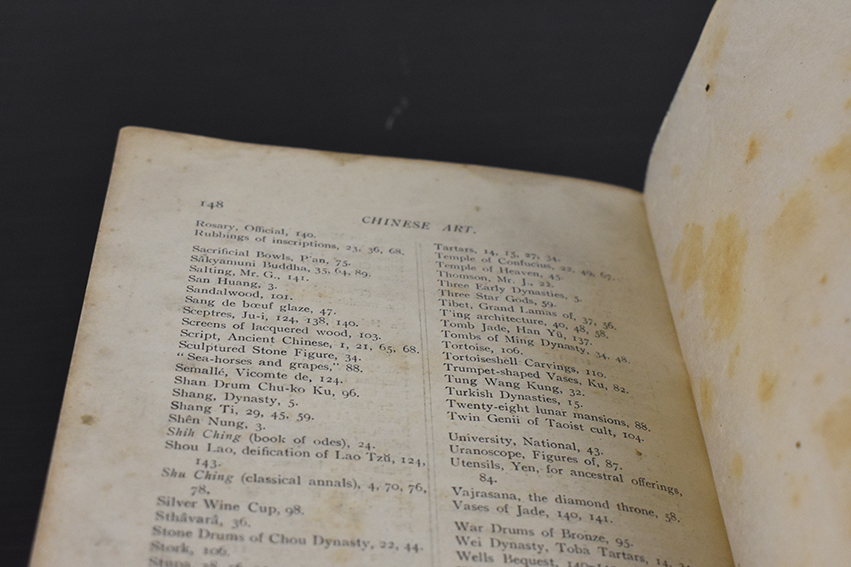 148
CHINESE ART.
Rosary, Official, 140.
Rubbings of inscriptions, 23, 36, 68.
Sacrificial Bowls, P'an, 75.
Sâkyamuni Buddha, 35, 64, 89.
Salting, Mr. G., 141.
San Huang, 3.
Sandalwood, 101.
Sang de bœuf glaze, 47.
Sceptres, Ju-i, 124, 138, 140.
Screens of lacquered wood, 103.
Script, Ancient Chinese, 1, 21, 65, 68.
Sculptured Stone Figure, 34.
"Sea-horses and grapes," 88.
Semallé, Vicomte de, 124.
Shan Drum Chu-ko Ku, 96.
Shang, Dynasty, 5.
Shang Ti, 29, 45, 59.
Shên Nung, 3.
Shih Ching (book of odes), 24.
Shou Lao, deification of Lao Tzŭ, 124,
143.
Shu Ching (classical annals), 4, 70, 76,
78.
Silver Wine Cup, 98.
Sthâvarâ, 36.
Stone Drums of Chou Dynasty, 22, 44.
Stork, 106.
Tartars, 14, 15, 27, 34.
Temple of Confucius, 22, 49, 67.
Temple of Heaven, 45.
Thomson, Mr. J., 22.
Three Early Dynasties, 5.
Three Star Gods, 59.
Tibet, Grand Lamas of, 37, 56.
T'ing architecture, 40, 48, 58.
Tomb Jade, Han Yü, 137.
Tombs of Ming Dynasty, 34, 48.
Tortoise, 106.
Tortoiseshell Carvings, 110.
Trumpet-shaped Vases, Ku, 82.
Tung Wang Kung, 32.
Turkish Dynasties, 15.
Twenty-eight lunar mansions, 88.
Twin Genii of Taoist cult, 104.
University, National, 43.
Uranoscope, Figures of, 87.
Utensils, Yen, for ancestral offerings,
84.
Vajrasana, the diamond throne, 58.
Vases of Jade, 140, 141.
War Drums of Bronze, 95.
Wei Dynasty, Toba Tartars, 14,
Wells Bequest,